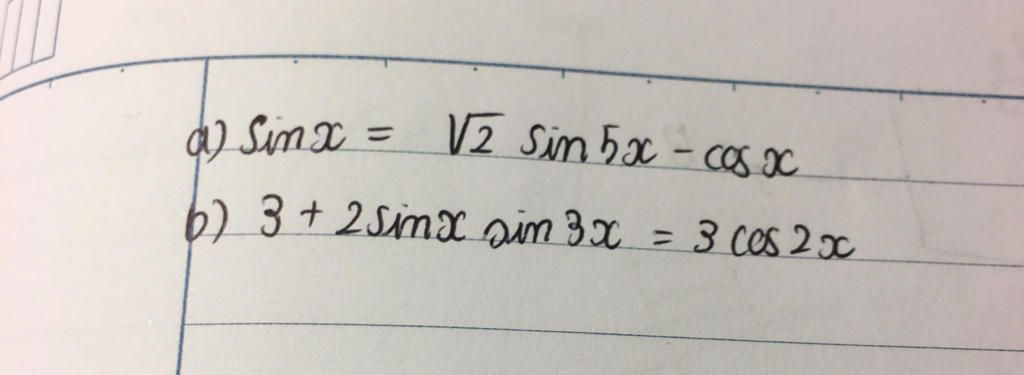 a) sin x = √2 sin 5x - cos x
b) 3 + 2 sin x sin 3x = 3 cos 2x